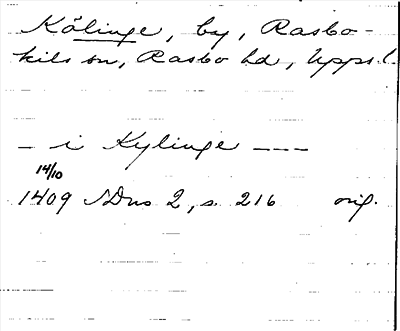 Kölinge, by, Rasbo-
kils sn, Rasbo hd, Upps. l.
— i Kylinge ---
14/10
1409 SDns 2, s. 216 orig.